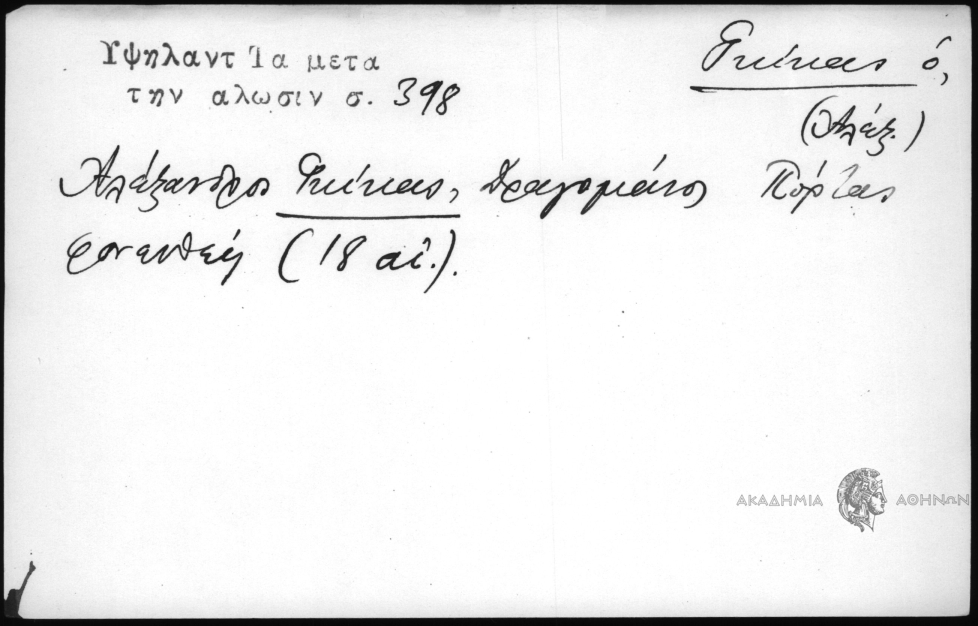 Υψηλαντ Τα μετα
την αλωσιν σ. 398
Γκίκας ὁ,
(Αλέξ.)
Αλέξανδρος Γκίκας, Δραγομάνος Πόρτας
φονευθείς (18 αἰ.).
ΑΚΑΔΗΜΙΑ ΑΘΗΝΩΝ